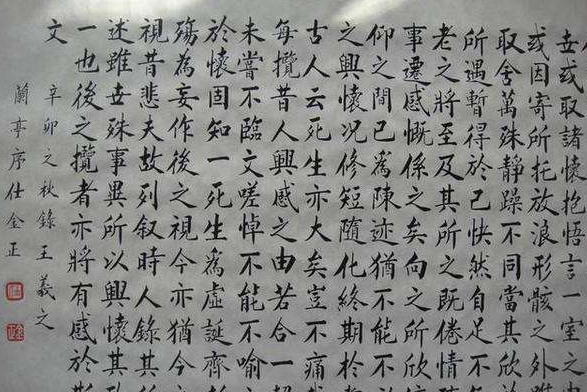 世或取諸懷抱悟言一室之
或因寄所托放浪形骸之外
取舍萬殊靜躁不同當其欣
所遇暫得於己快然自足不
老之將至及其所之既倦情
事遷感慨係之矣向之所欣
仰之間已為陳迹猶不能不
之興懷况修短隨化終期於
古人云死生亦大矣豈不痛
每攬昔人興感之由若合一
未嘗不臨文嗟悼不能不喻
於懷固知一死生為虛誕齊
殤為妄作後之視今亦猶今
視昔悲夫故列叙時人錄其
述雖世殊事異所以興懷其
一也後之攬者亦將有感於
文
辛卯之秋錄王羲之
蘭亭序仕金正